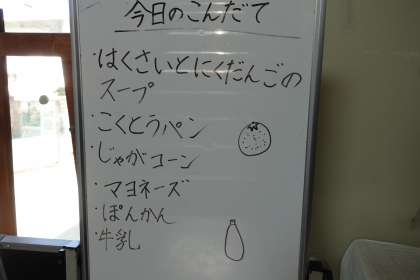 今日のこんだて
・はくさいとにくだんごの
スープ
・こくとうパン
・じゃがコーン
・マヨネーズ
・ぽんかん
・牛乳